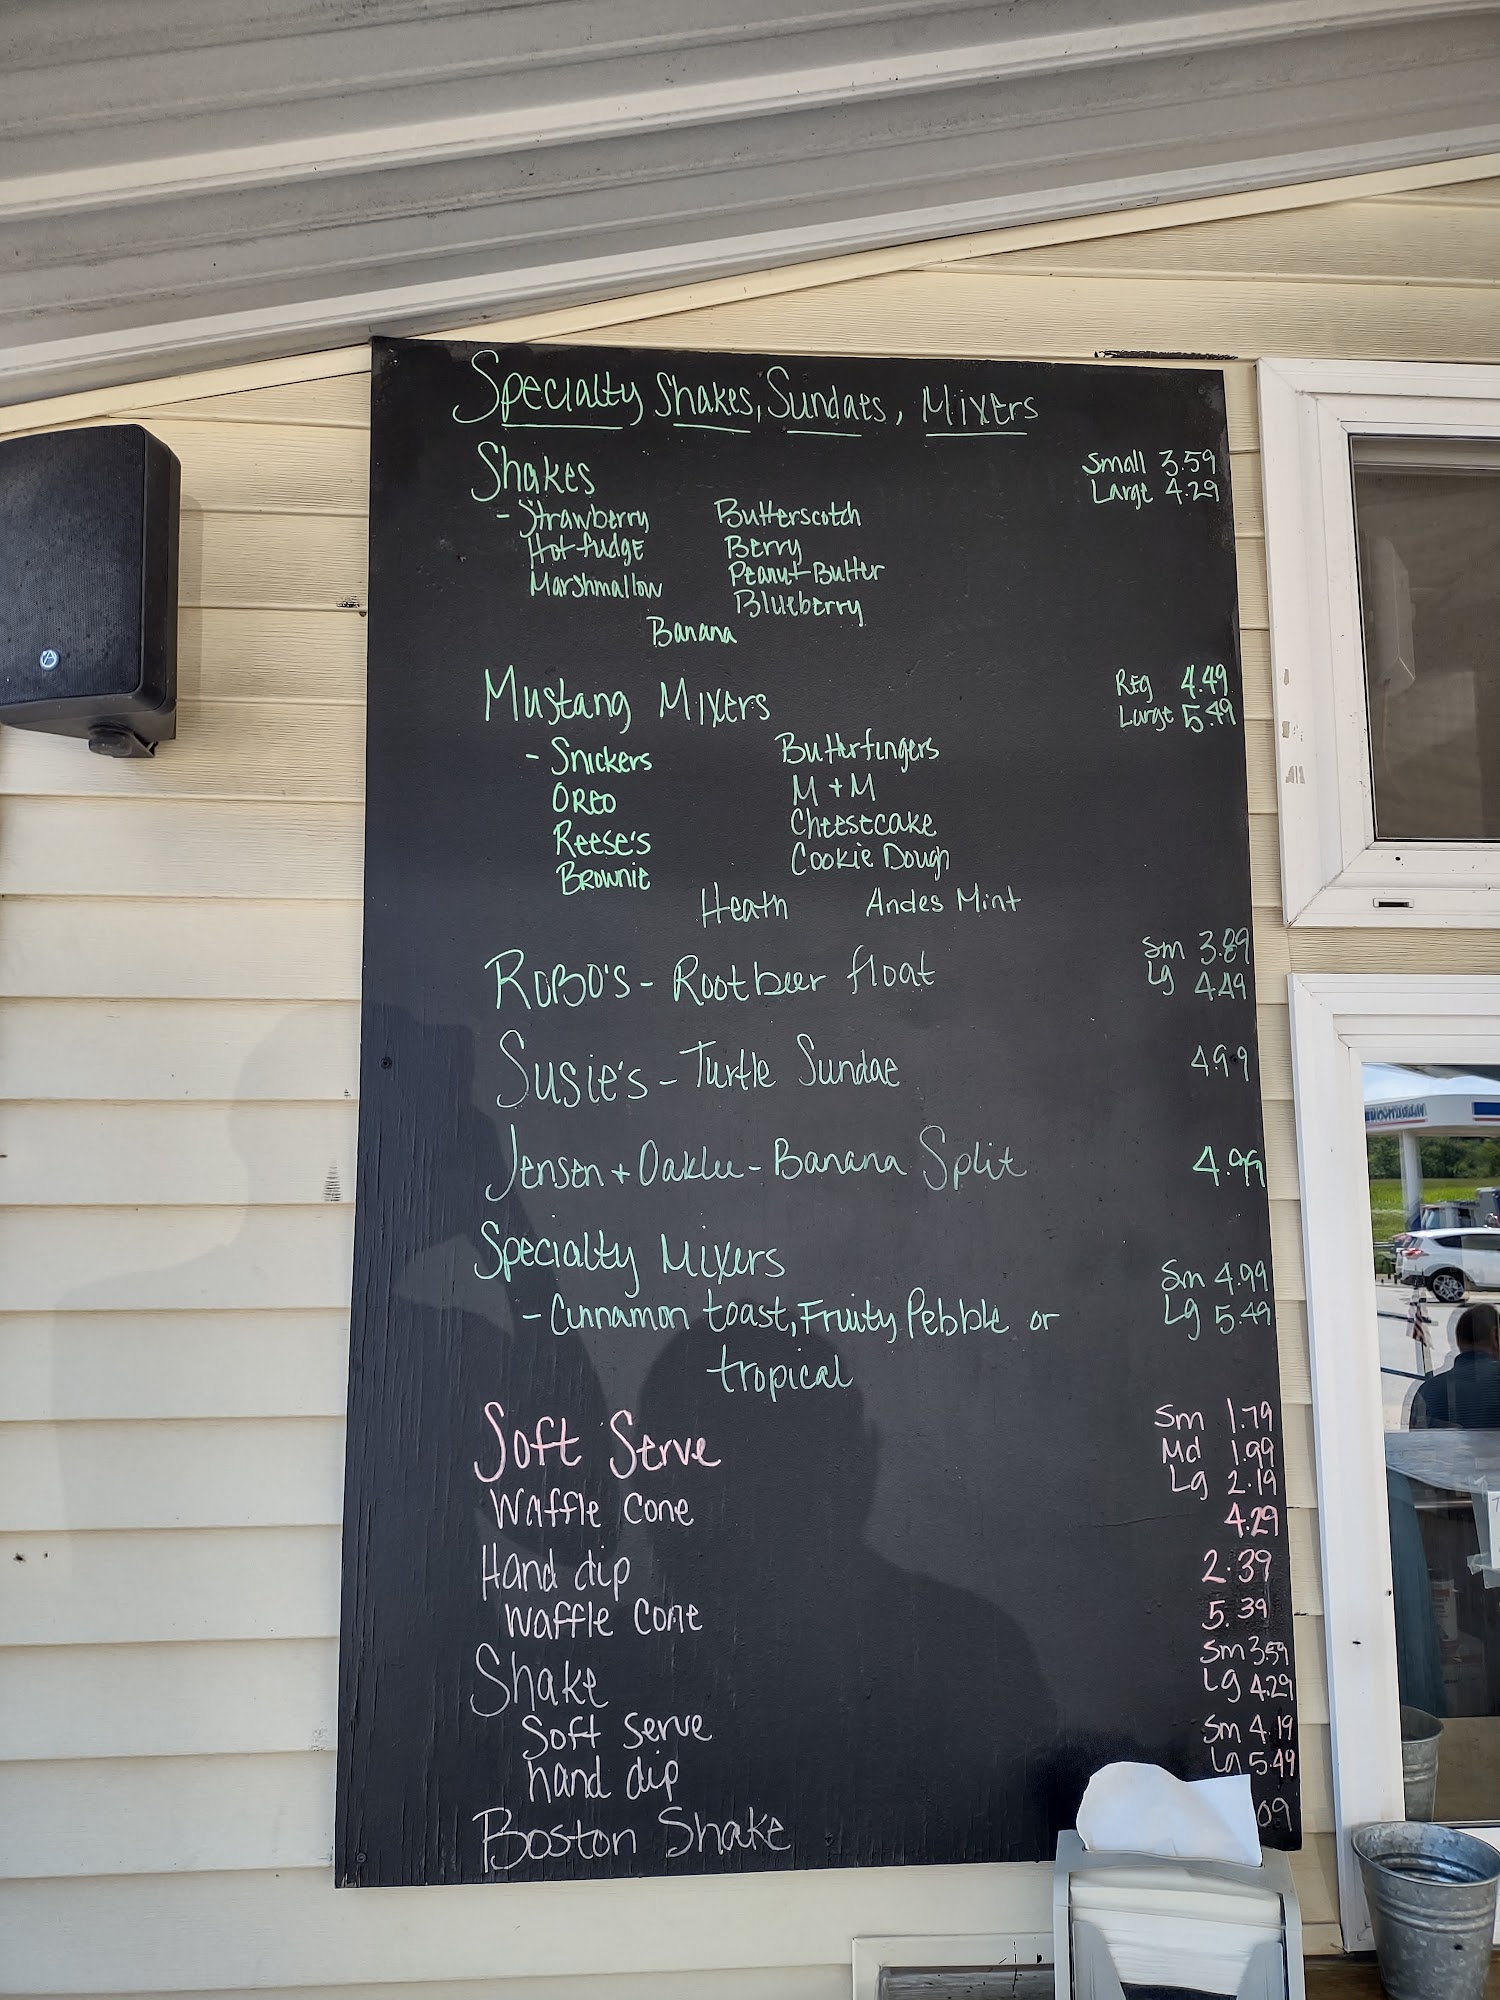 Specialty Shakes, Sundaes, Mixers
Shakes Small 3.59
Large 4.29
- Strawberry Butterscotch
Hot fudge Berry
Marshmallow Peanut Butter
Blueberry
Banana
Mustang Mixers Reg 4.49
Large 5.49
- Snickers Butterfingers
Oreo M + M
Reese's Cheesecake
Brownie Cookie Dough
Heath Andes Mint
Robo's - Rootbeer float Sm 3.89
Lg 4.49
Susie's - Turtle Sundae 4.99
Jensen + Oaklee - Banana Split 4.99
Specialty Mixers Sm 4.99
- Cinnamon toast, Fruity Pebble or Lg 5.49
tropical
Soft Serve Sm 1.79
Md 1.99
Lg 2.19
Waffle Cone 4.29
Hand dip 2.39
Waffle Cone 5.39
Shake Sm 3.59
Lg 4.29
Soft Serve Sm 4.19
hand dip Lg 5.49
Boston Shake 09